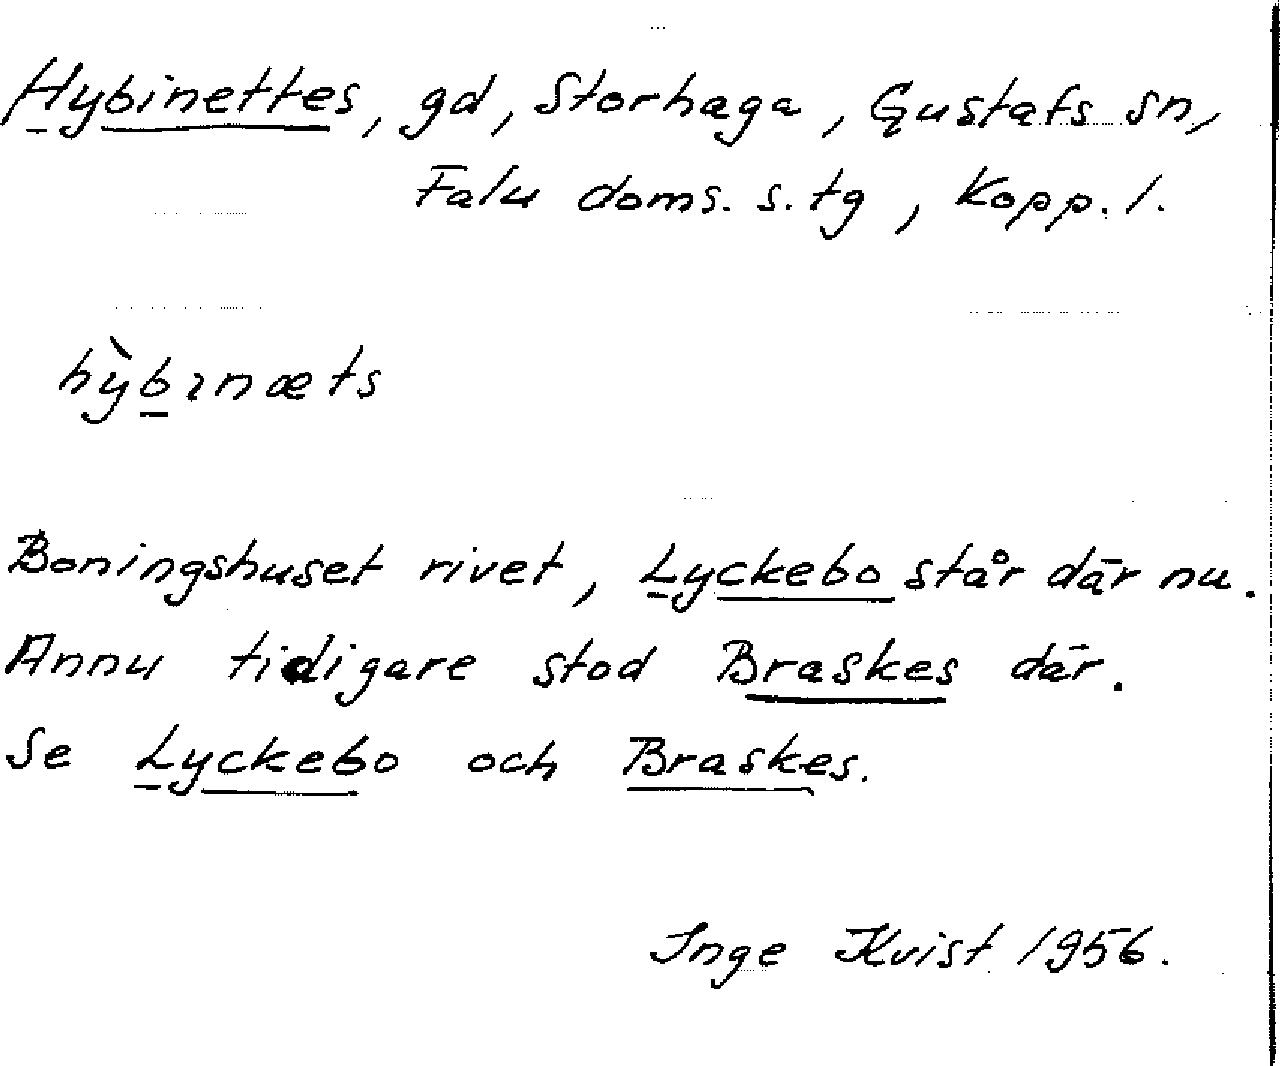 Hybinettes, gd, Storhaga, Gustafs sn,
Falu doms. s. tg, Kopp. l.
hỳbɪnæts
Boningshuset rivet, Lyckebo står där nu.
Annu tidigare stod Braskes där.
Se Lyckebo och Braskes.
Inge Kvist 1956.